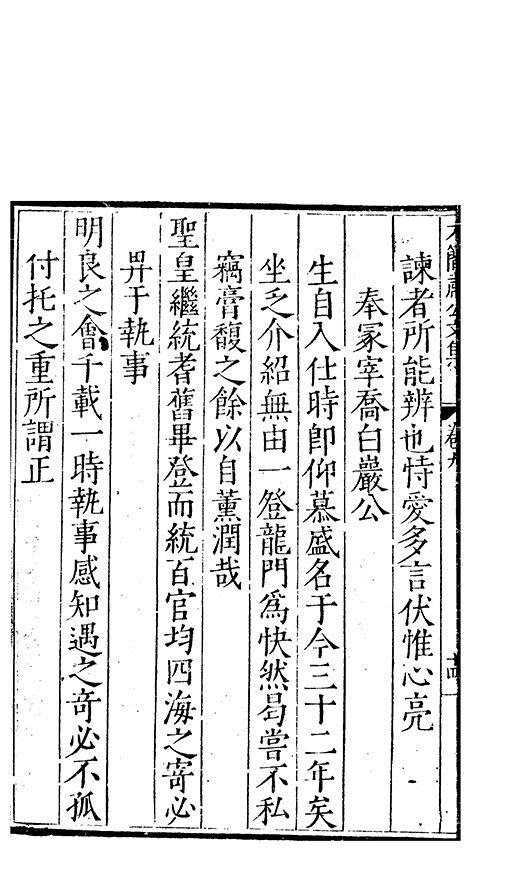 諫者所能辨也恃愛多言伏惟心亮
奉冢宰喬白巖公
生自入仕時卽仰慕盛名于今三十二年矣
坐乏介紹無由一登龍門爲快然曷嘗不私
竊膏馥之餘以自薰潤哉
聖皇繼統耆舊畢登而統百官均四海之寄必
畀于執事
明良之會千載一時執事感知遇之竒必不孤
付托之重所謂正